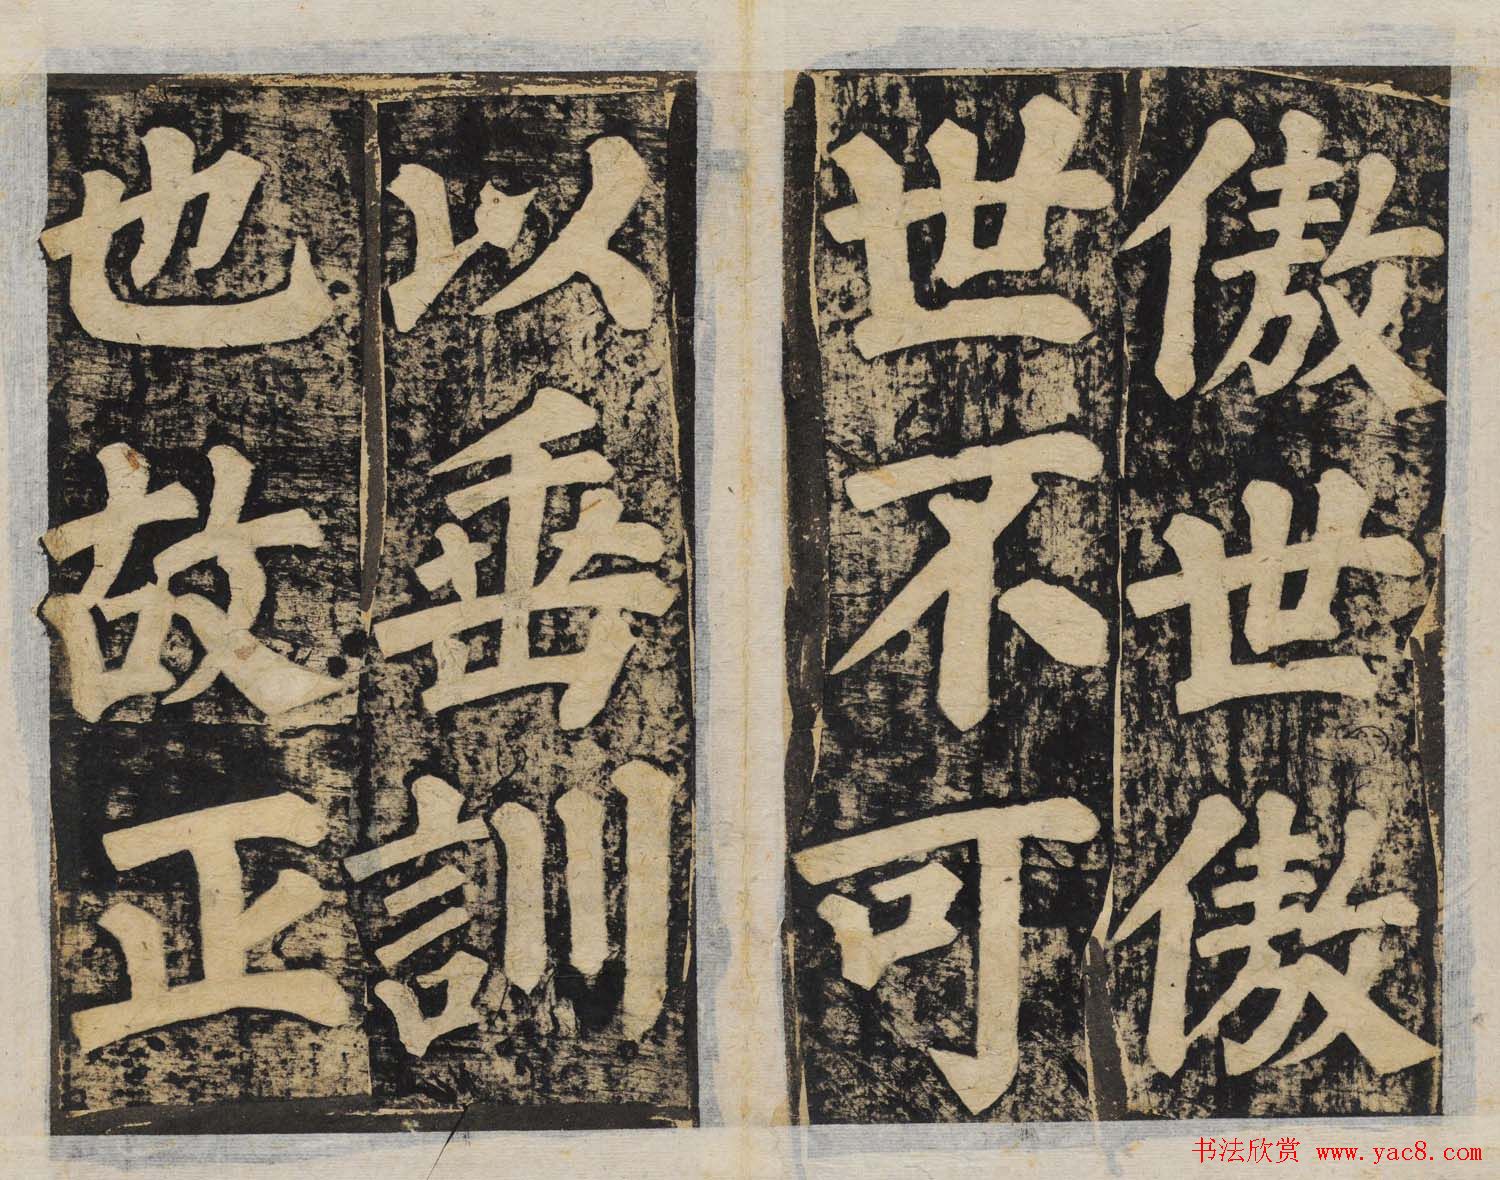 傲世傲
世不可
以垂訓
也故正
书法欣赏 www.yac8.com